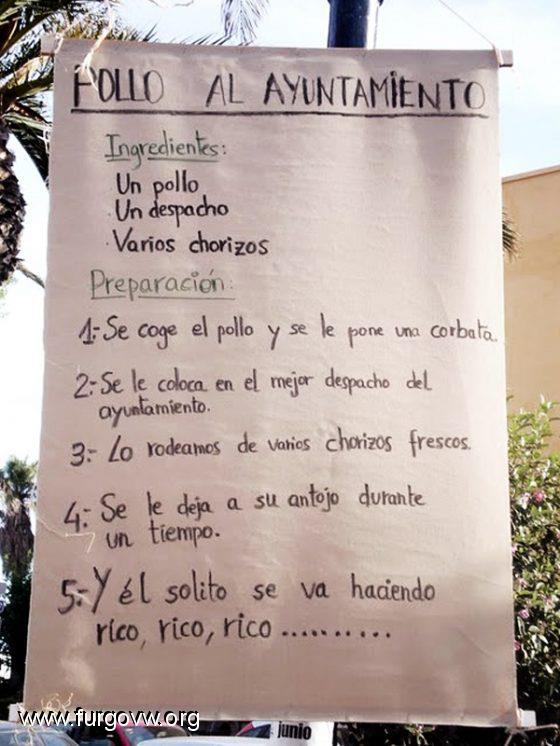 POLLO AL AYUNTAMIENTO
Ingredientes:
Un pollo
Un despacho
Varios chorizos
Preparación:
1:- Se coge el pollo y se le pone una corbata.
2:- Se le coloca en el mejor despacho del
ayuntamiento.
3:- Lo rodeamos de varios chorizos frescos.
4:- Se le deja a su antojo durante
un tiempo.
5:- Y él solito se va haciendo
rico, rico, rico ..........
www.furgovw.org
junio